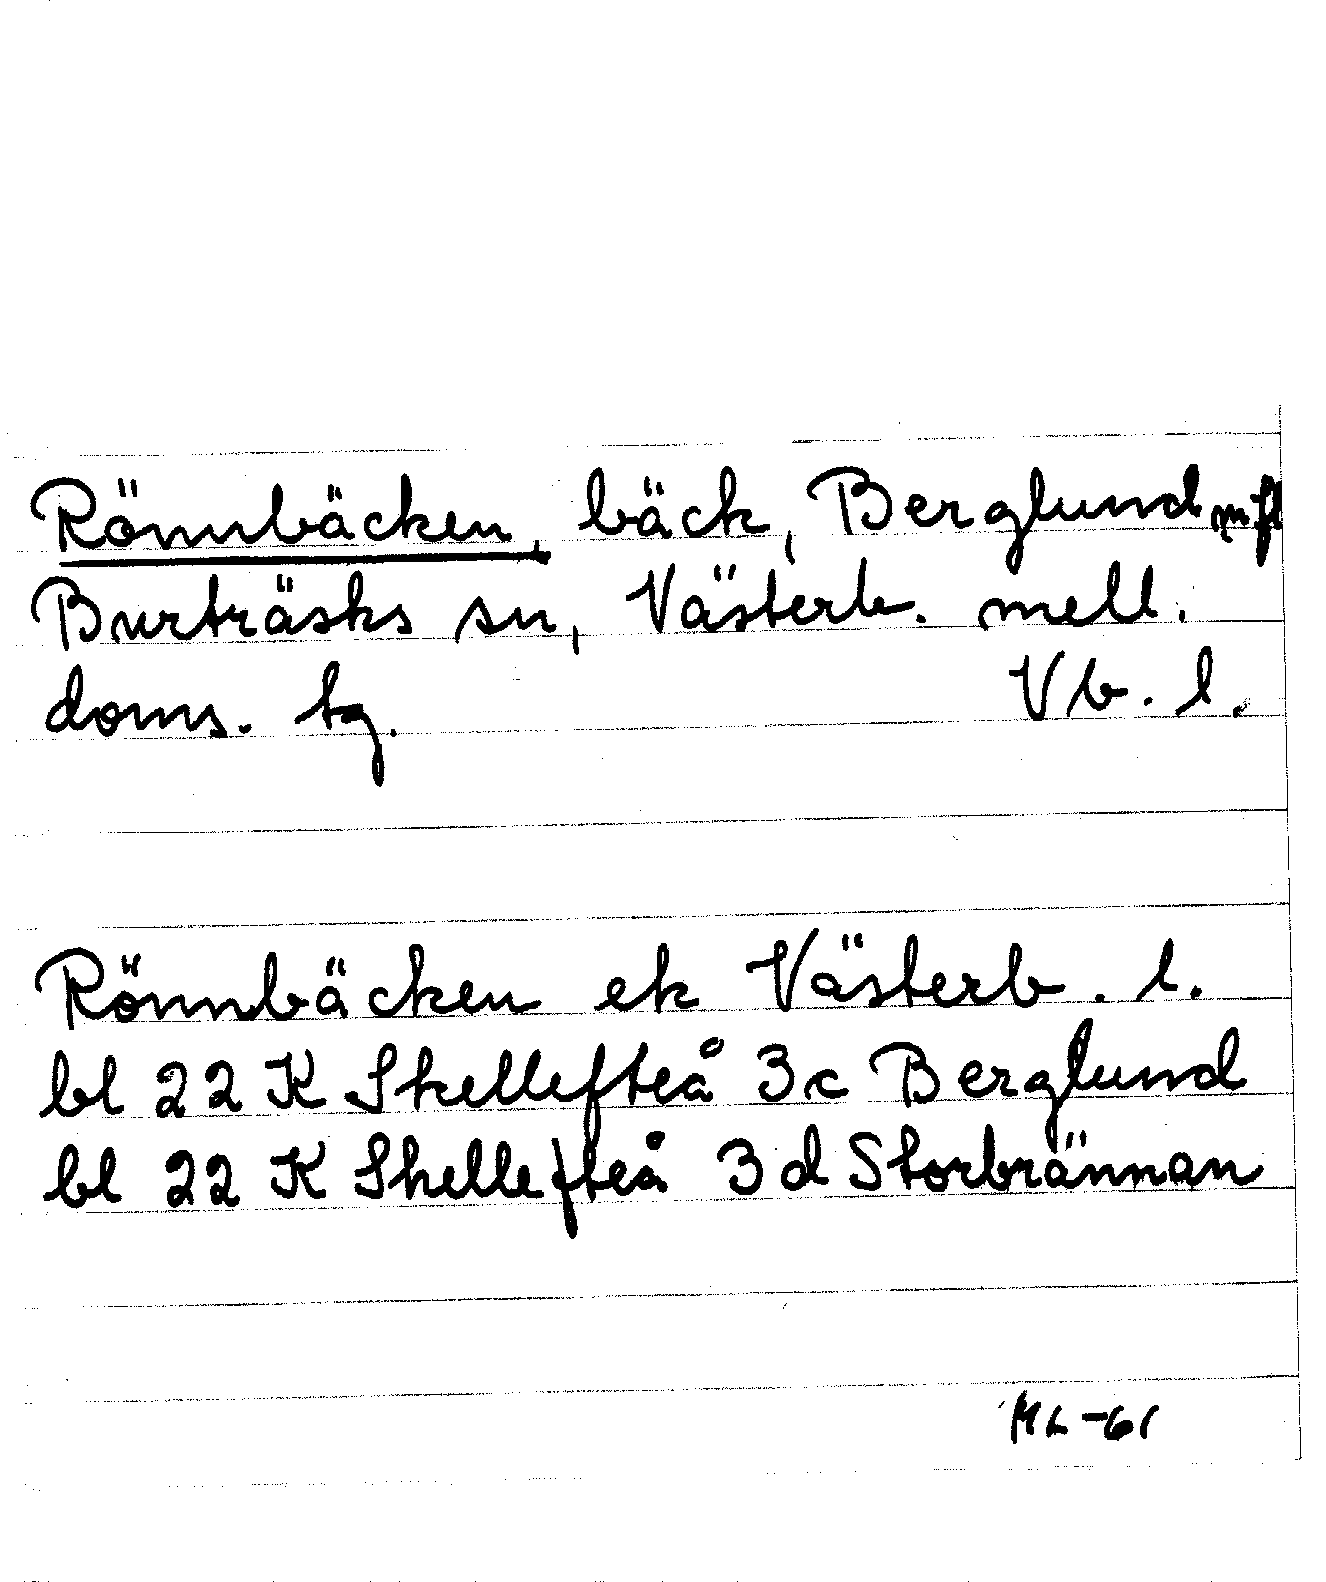 Rönnbäcken, bäck, Berglund m fl
Burträsks sn, Västerb. mell.
doms. tg. Vb. l.
Rönnbäcken ek Västerb. l.
bl 22 K Skellefteå 3c Berglund
bl 22 K Skellefteå 3d Storbrännan
ML-61